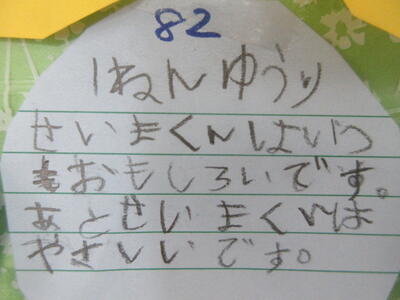 82
1ねんゆうり
せいまくんはいつ
もおもしろいです。
あとせいまくんは
やさしいです。